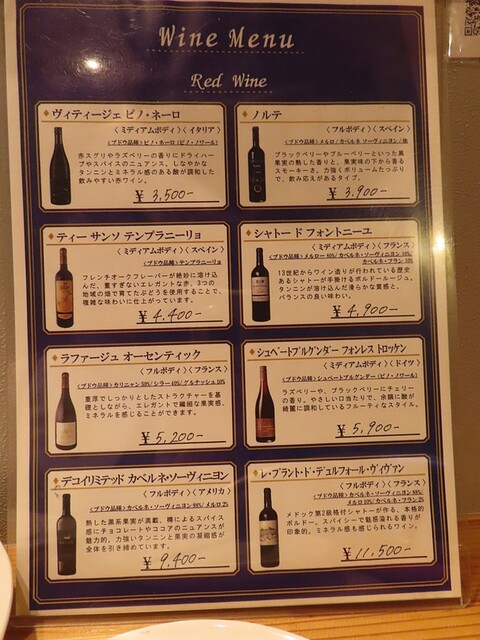 Wine Menu
Red Wine
ヴィティージェ ピノ・ネーロ
〈ミディアムボディ〉〈イタリア〉
〈ブドウ品種〉ピノ・ネーロ(ピノ・ノワール)
赤スグリやラズベリーの香りにドライハーブやスパイスのニュアンス、しなやかなタンニンとミネラル感のある酸が調和した飲みやすい赤ワイン。
¥3,500-
ノルテ
〈フルボディ〉〈スペイン〉
〈ブドウ品種〉メルロ/カベルネ ソーヴィニヨン/他
ブラックベリーやブルーベリーといった黒果実の熟した香りと、果実味の下から香るスモーキーさ。力強くボリュームたっぷりで、飲み応えがあるタイプ。
¥3,900-
ティー サンソ テンプラニーリョ
〈ミディアムボディ〉〈スペイン〉
〈ブドウ品種〉テンプラニーリョ
フレンチオークフレーバーが絶妙に溶け込んだ、重すぎないエレガントな赤。3つの地域の畑で育てたぶどうを使用することで、複雑な味わいに仕上がっています。
¥4,400-
シャトー ド フォントニーユ
〈ミディアムボディ〉〈フランス〉
〈ブドウ品種〉メルロー 80%/カベルネ・ソーヴィニヨン 10%/
カベルネ・フラン 10%
13世紀からワイン造りが行われている歴史あるシャトーが手掛けるボルドールージュ。タンニンが溶け込んだ滑らかな質感と、バランスの良い味わい。
¥4,900-
ラファージュ オーセンティック
〈フルボディ〉〈フランス〉
〈ブドウ品種〉カリニャン 50%/シラー 40%/グルナッシュ 10%
重厚でしっかりとしたストラクチャーを基礎としながら、エレガントで繊細な果実感、ミネラルを感じることができます。
¥5,200-
シュペートブルグンダー フォンレス トロッケン
〈ミディアムボディ〉〈ドイツ〉
〈ブドウ品種〉シュペートブルグンダー(ピノ・ノワール)
ラズベリーや、ブラックベリーにチェリーの香り。やさしい口当たりで、余韻に酸が綺麗に調和しているフルーティなスタイル。
¥5,900-
デコイリミテッド カベルネ・ソーヴィニヨン
〈フルボディ〉〈アメリカ〉
〈ブドウ品種〉カベルネ・ソーヴィニヨン 98%/メルロ 2%
熟した黒系果実が満載、樽によるスパイス感にチョコレートやココアのニュアンスが魅力的。力強いタンニンと果実の凝縮感が全体を引き締めています。
¥9,400-
レ・プラント・ド・デュルフォール・ヴィヴァン
〈フルボディ〉〈フランス〉
〈ブドウ品種〉カベルネ・ソーヴィニヨン 88%/
メルロ 10%/カベルネ・フラン 2%
メドック第2級格付シャトーが作る、本格的ボルドー。スパイシーで魅惑溢れる香りが印象的。ミネラル感も感じられるワイン。
¥11,500-